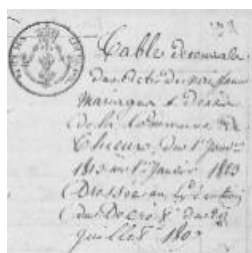 Table decennale
des actes de naissances
Mariages & décès
de la Commune de
du 1er Janvier
1813 au 1er Janvier 1823
Dressée en exécution
du Décret du 20
Juillet 1807